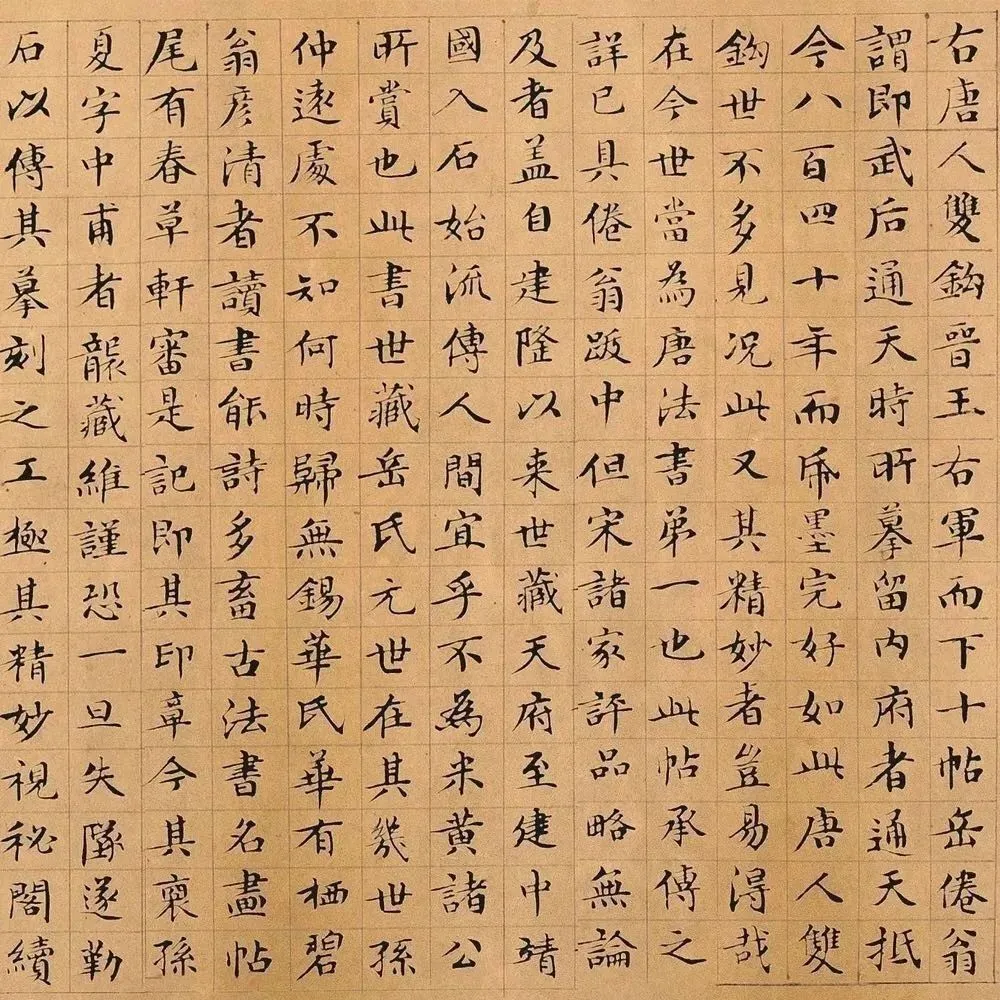 右唐人雙鈎晉王右軍而下十帖岳倦翁
謂即武后通天時所摹留内府者通天抵
今八百四十年而帋墨完好如此唐人雙
鈎世不多見况此又其精妙者豈易得哉
在今世當為唐法書弟一也此帖承傳之
詳已具倦翁跋中但宋諸家評品略無論
及者盖自建隆以来世藏天府至建中靖
國入石始流傳人間宜乎不為米黄諸公
所賞也此書世藏岳氏元世在其幾世孫
仲遠處不知何時歸無錫華氏華有栖碧
翁彦清者讀書能詩多畜古法書名畫帖
尾有春草軒審是記即其印章今其裔孫
夏字中甫者襲藏維謹恐一旦失墜遂勒
石以傳其摹刻之工極其精妙視秘閣續